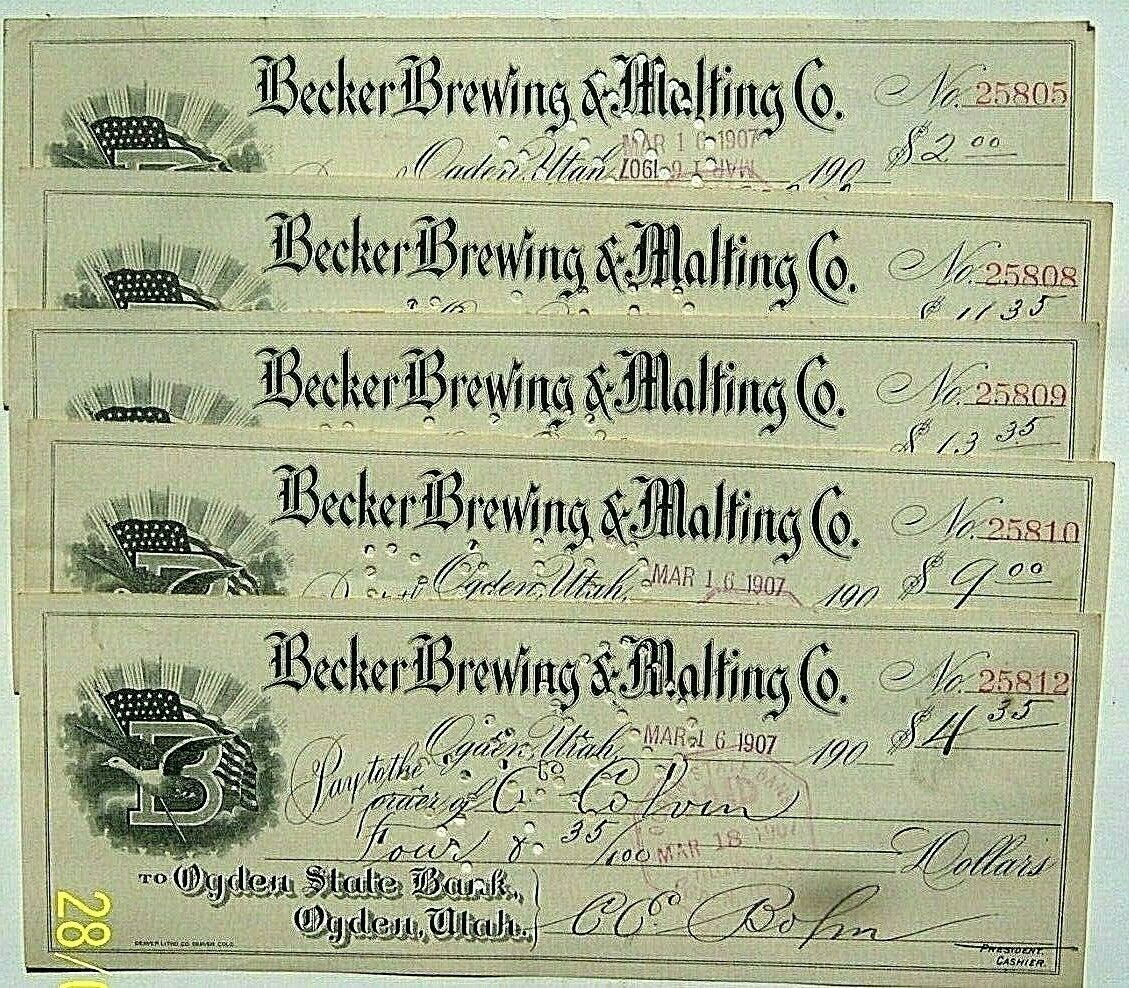 Becker Brewing & Malting Co.
No. 25805
$2 00
Ogden, Utah, MAR 16 1907 190
MAR 16 1907
Becker Brewing & Malting Co.
No. 25808
$ 11 35
Becker Brewing & Malting Co.
No. 25809
$ 13 35
Becker Brewing & Malting Co.
No. 25810
Ogden, Utah, MAR 16 1907 190
$ 9 00
Becker Brewing & Malting Co.
No. 25812
Ogden, Utah, MAR 16 1907 190 $4 35
B
Pay to the
order of C Colvin
Four & 35/100 Dollars
MAR 18 1907
TO Ogden State Bank,
Ogden, Utah.
CC Bohn
PRESIDENT.
CASHIER.
DENVER LITHO CO. DENVER, COLO.
28/